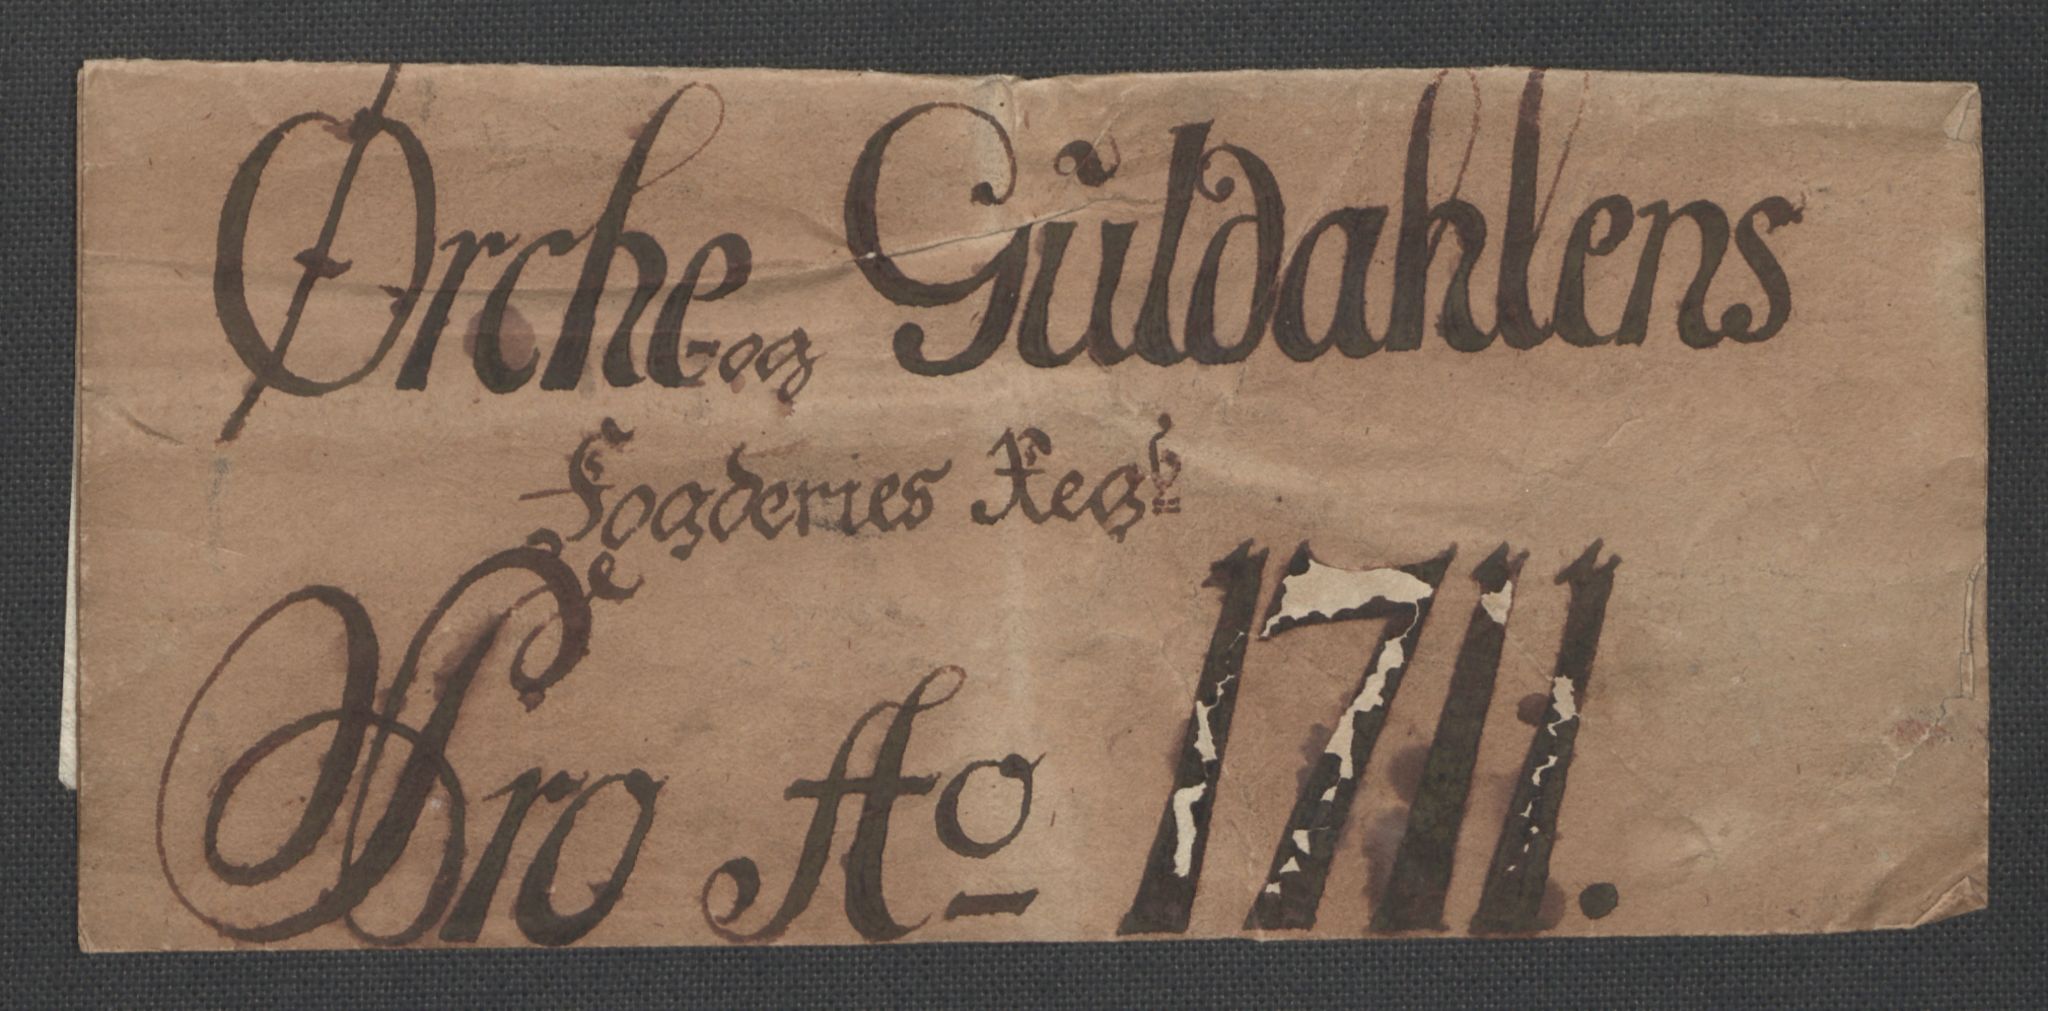 Ørche-og Gůldahlens
Fogderies Regb
e
Pro Ao 1711.